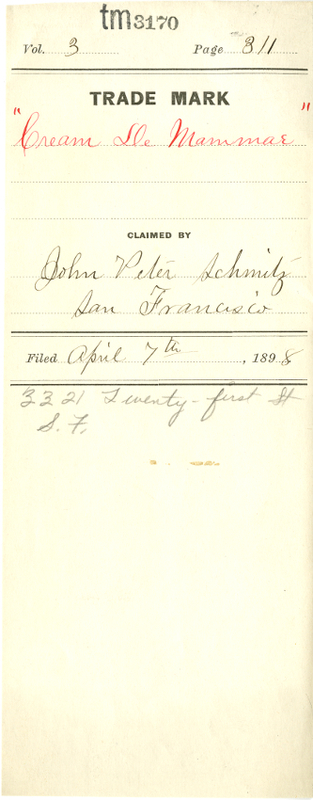 tm3170
Vol. 3 Page 311
TRADE MARK
"Cream De Mammae"
CLAIMED BY
John Peter Schmitz
San Francisco
Filed April 7th, 1898
3321 Twenty-first St
S. F.